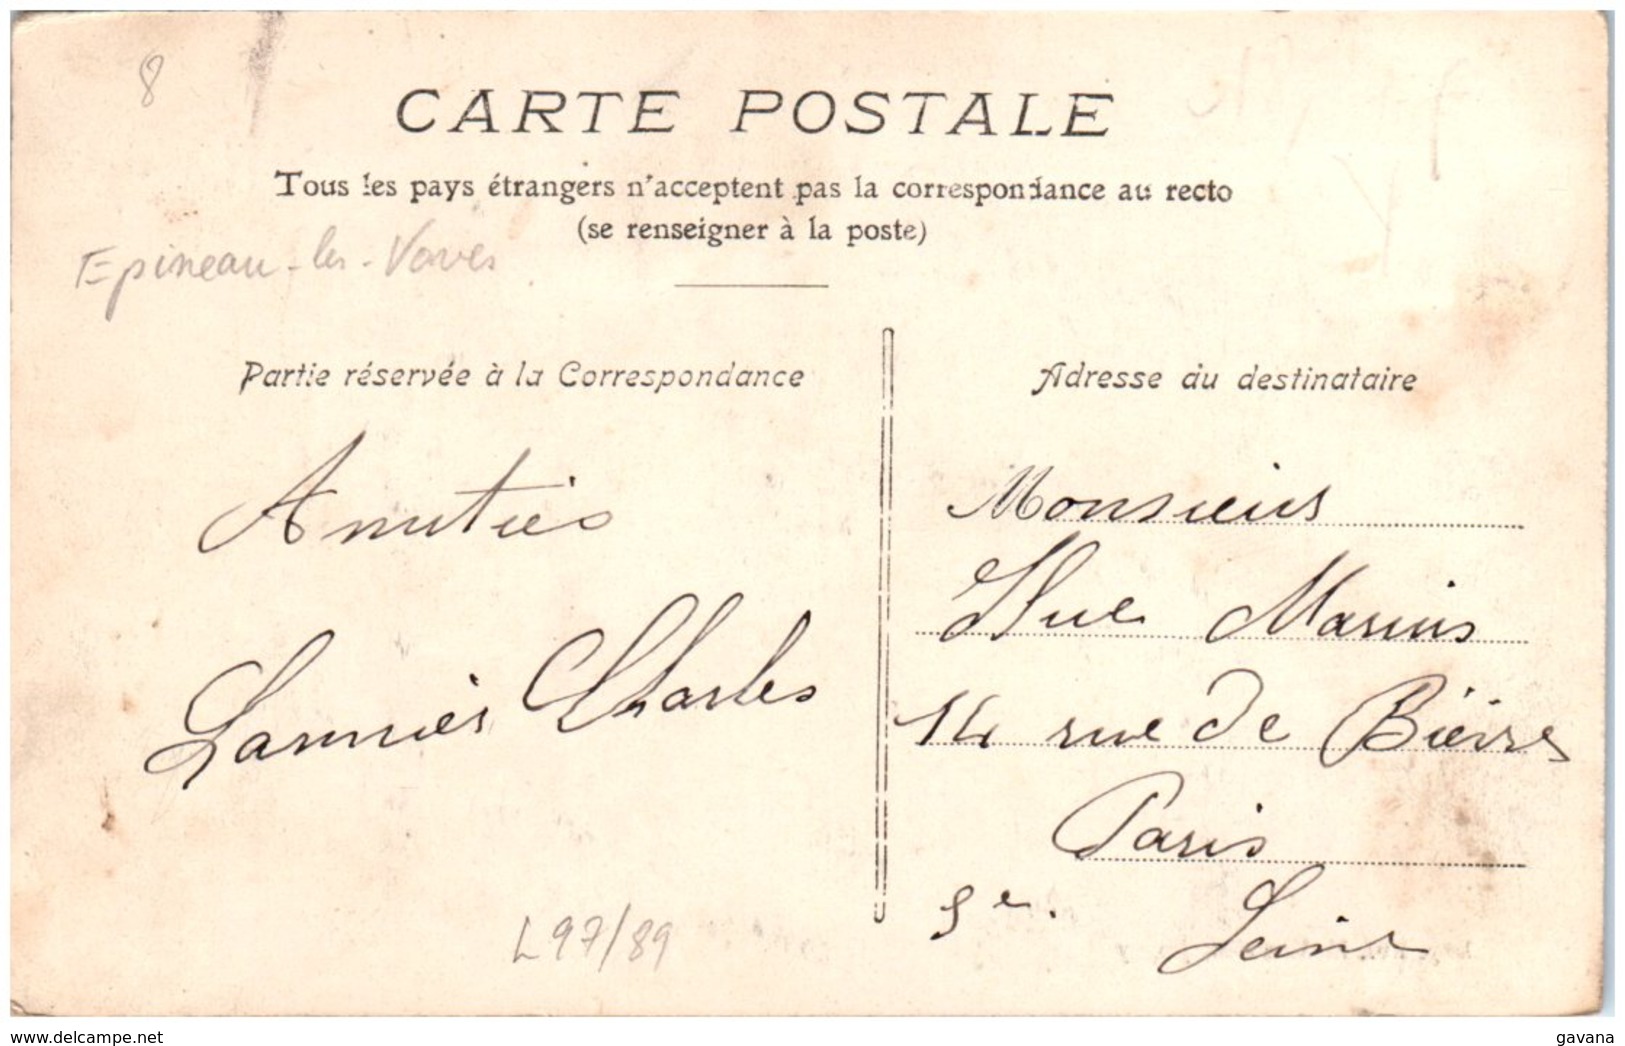 8
CARTE POSTALE
Tous les pays étrangers n'acceptent pas la correspondance au recto
(se renseigner à la poste)
Epineau-les-Voves
Partie réservée à la Correspondance
Amitiés
Lanniès Charles
L97/89
Adresse du destinataire
Monsieur
Hue Marius
14 rue de Bièvres
Paris
5e.
Seine
www.delcampe.net
gavana